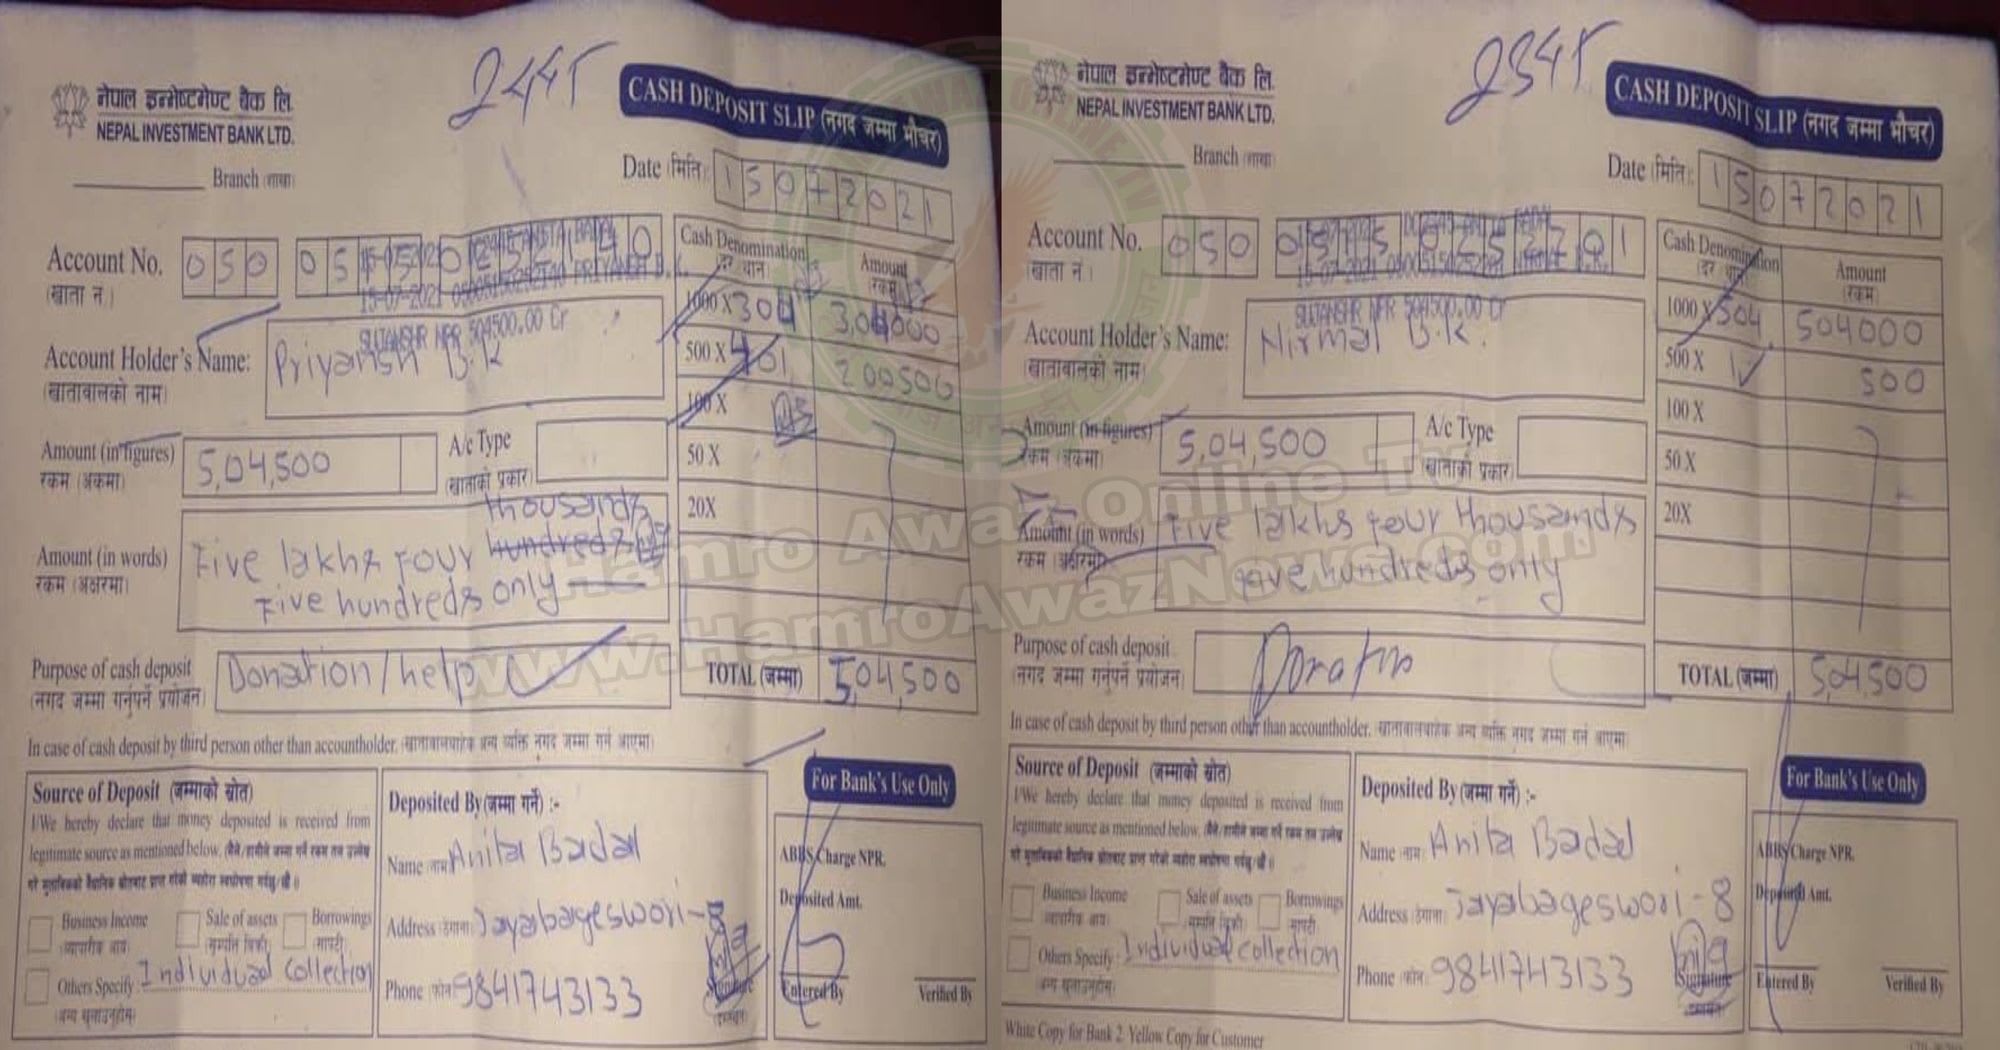 2445
नेपाल इन्भेष्टमेण्ट बैंक लि.
NEPAL INVESTMENT BANK LTD.
CASH DEPOSIT SLIP (नगद जम्मा भौचर)
Branch (शाखा)
Date (मिति): 15072021
Account No. 050
(खाता नं.)
15-07-2021 05005150252140 PRIYANSH B.K.
SULTANSHR NPR 504500.00 Cr
Account Holder's Name: Priyansh B.K
(खातावालको नाम)
Cash Denomination
Amount
(रकम)
1000 X 304 3,04000
500 X 401 200500
100 X
50 X
20X
Amount (in figures) 5,04,500
रकम (अंकमा)
A/c Type
(खाताको प्रकार)
Amount (in words) Five lakhs four hundreds thousands
रकम (अक्षरमा) Five hundreds only
Purpose of cash deposit Donation/help
(नगद जम्मा गर्नुपर्ने प्रयोजन)
TOTAL (जम्मा) 5,04,500
In case of cash deposit by third person other than accountholder.
Source of Deposit (जम्माको स्रोत)
I/We hereby declare that money deposited is received from
legitimate source as mentioned below.
Business Income
Sale of assets
Borrowings
Others Specify: Individual collection
Deposited By (जम्मा गर्ने) :-
Name नाम: Anita Badal
Address ठेगाना: Jayabageswori-8
Phone फोन: 9841743133
Signature
For Bank's Use Only
ABBS Charge NPR.
Deposited Amt.
Entered By
Verified By
2345
नेपाल इन्भेष्टमेण्ट बैंक लि.
NEPAL INVESTMENT BANK LTD.
CASH DEPOSIT SLIP (नगद जम्मा भौचर)
Branch (शाखा)
Date (मिति): 15072021
Account No. 050
(खाता नं.)
SULTANSHR NPR 504500.00 Cr
Account Holder's Name: Nirmal B.K.
(खातावालको नाम)
Cash Denomination
Amount
(रकम)
1000 X 504 504000
500 X 1 500
100 X
50 X
20X
Amount (in figures) 5,04,500
रकम (अंकमा)
A/c Type
(खाताको प्रकार)
Amount (in words) Five lakhs four thousands
रकम (अक्षरमा) five hundreds only
Purpose of cash deposit
(नगद जम्मा गर्नुपर्ने प्रयोजन)
TOTAL (जम्मा) 5,04,500
In case of cash deposit by third person other than accountholder.
Source of Deposit (जम्माको स्रोत)
I/We hereby declare that money deposited is received from
legitimate source as mentioned below.
Business Income
Sale of assets
Borrowings
Others Specify: Individual collection
Deposited By (जम्मा गर्ने) :-
Name नाम: Anita Badal
Address ठेगाना: Jayabageswori-8
Phone फोन: 9841743133
Signature
For Bank's Use Only
ABBS Charge NPR.
Deposited Amt.
Entered By
Verified By
White Copy for Bank 2. Yellow Copy for Customer
Hamro Awaz Online Tv
www.HamroAwazNews.com